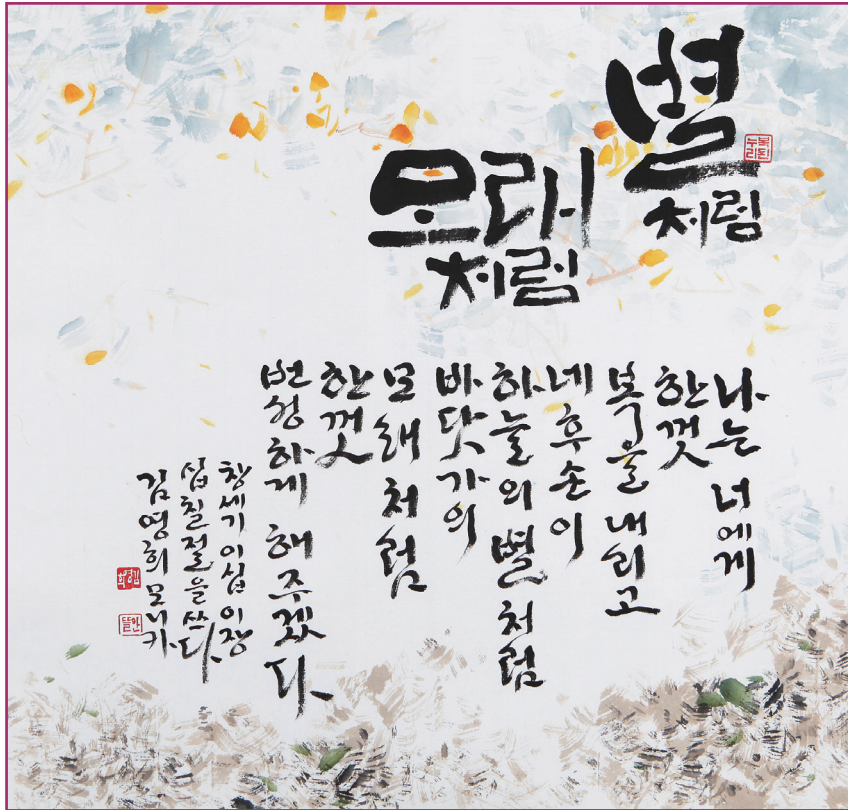 별
처럼
모래
처럼
나는 너에게
한껏
복을 내리고
네 후손이
하늘의 별처럼
바닷가의
모래처럼
한껏
번성하게 해주겠다
창세기 이십이장
십칠절을 쓰다
김영희 모니카